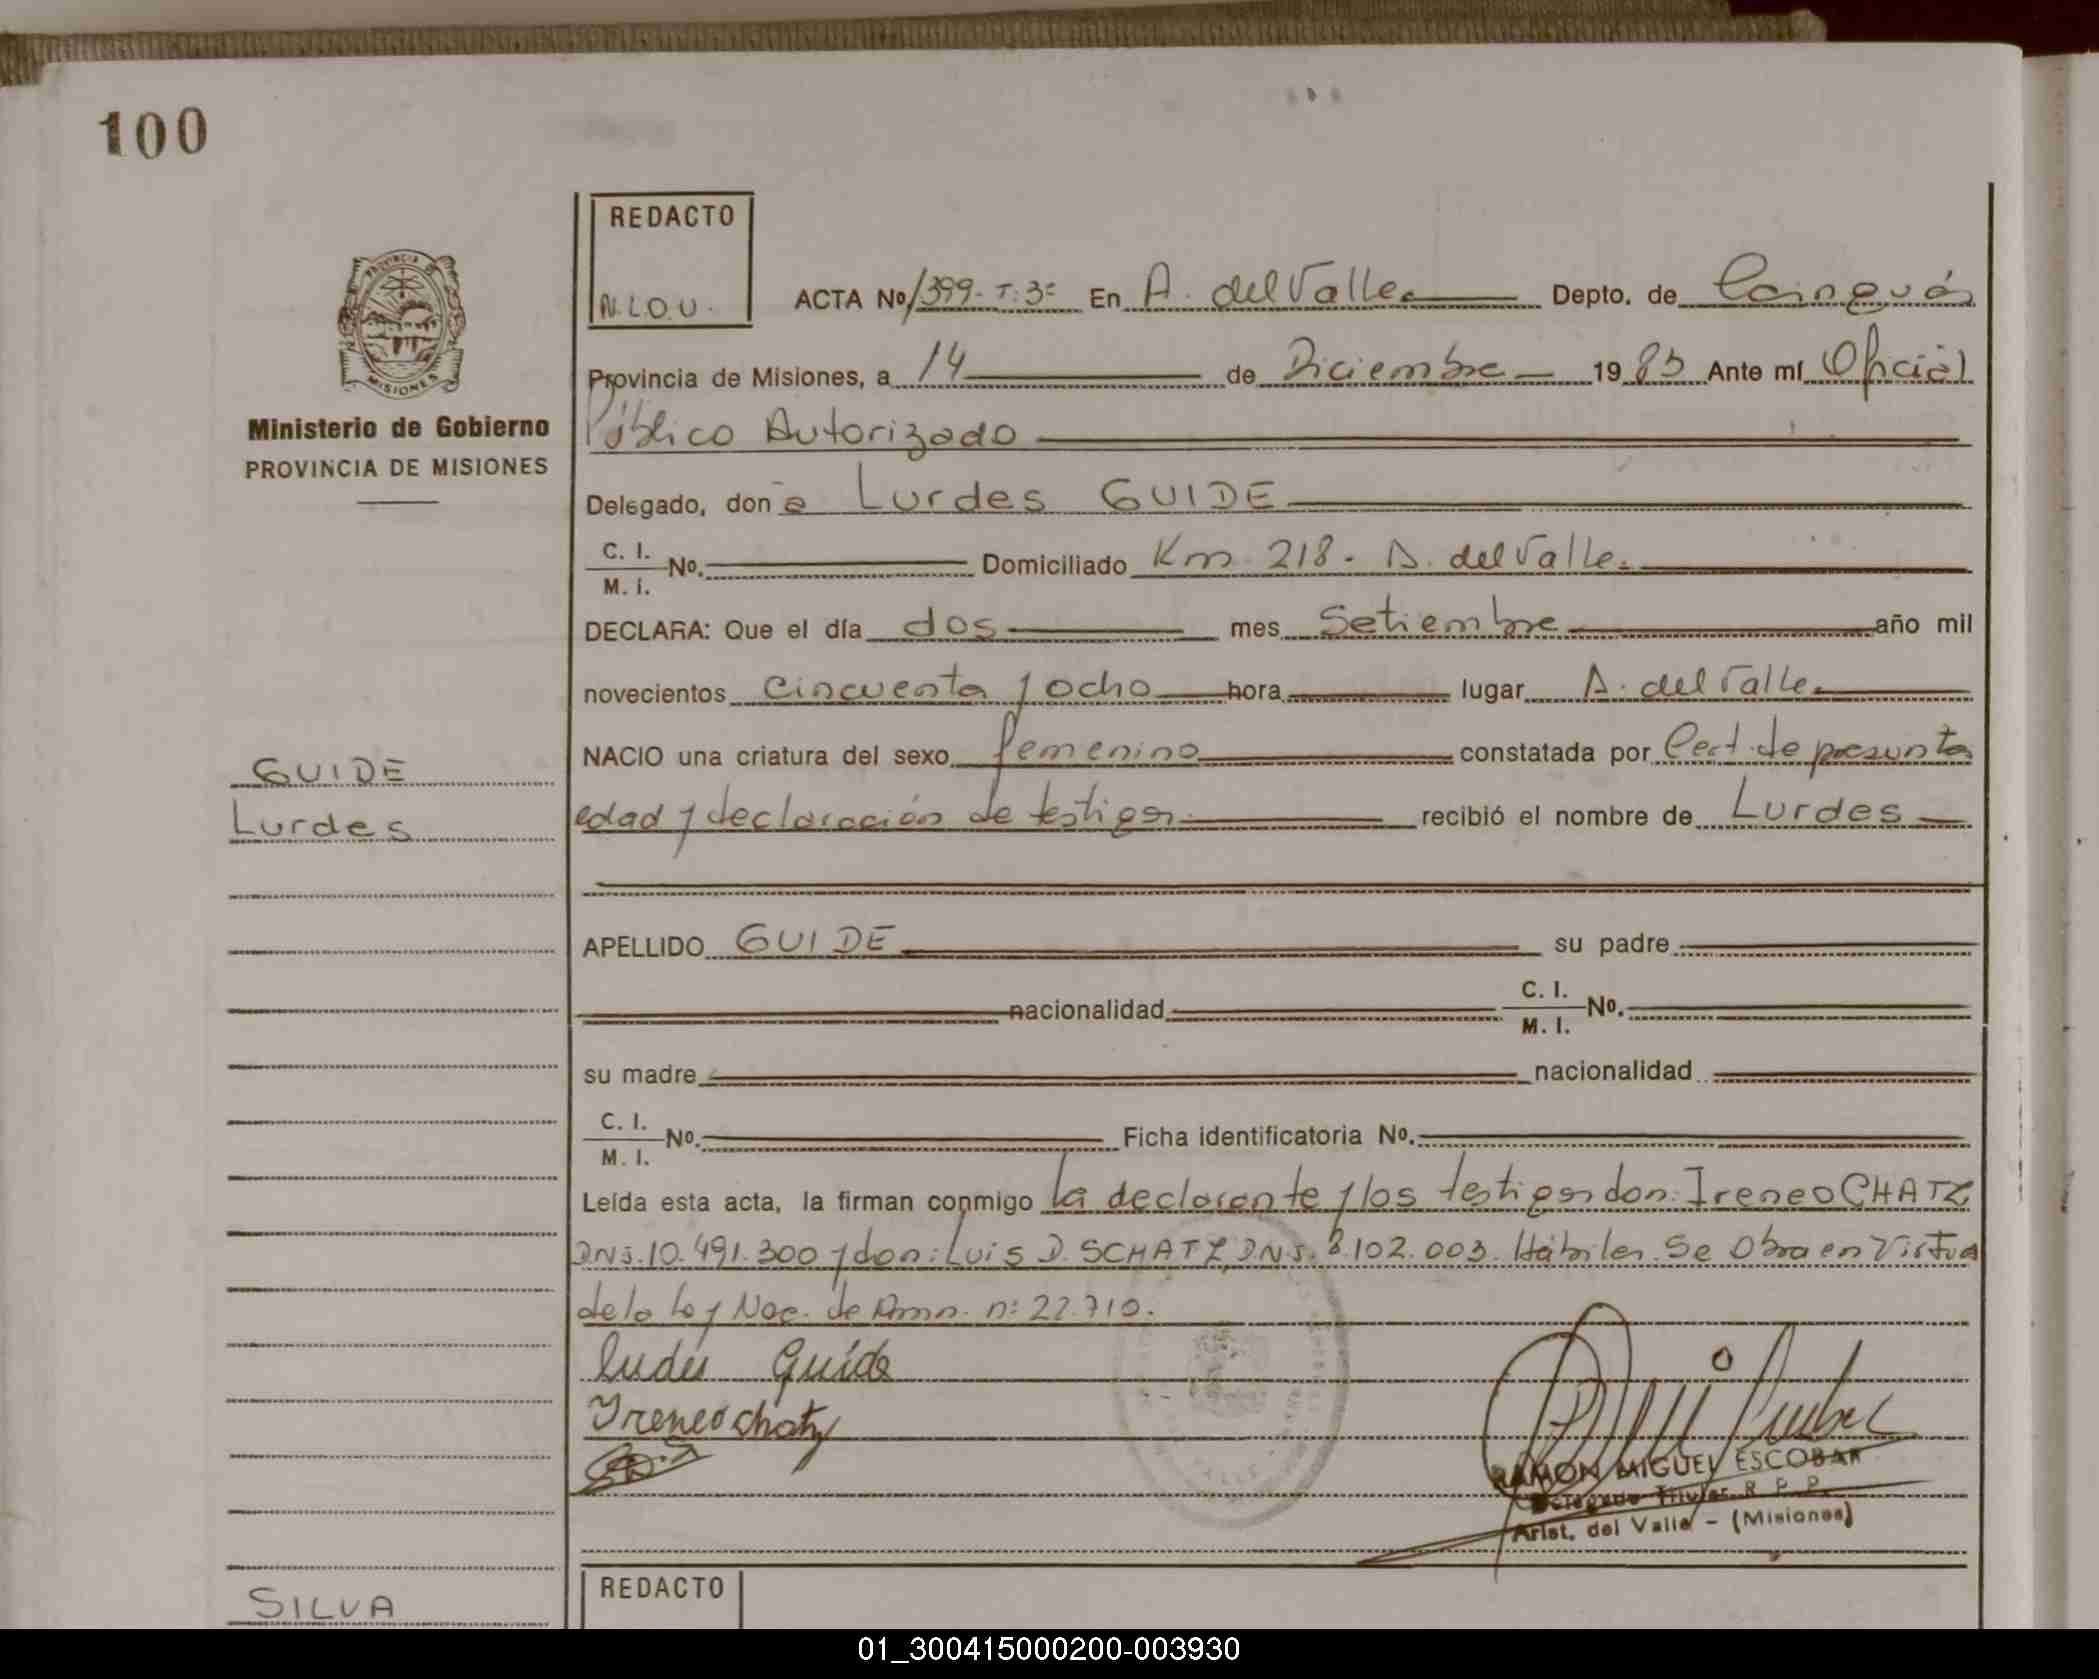 100
REDACTO
N.L.O.U.
ACTA Nº 1399-T:3º En A. del Valle Depto. de Cainguás
Provincia de Misiones, a 14 de Diciembre 1983 Ante mí Oficial
Público Autorizado
PROVINCIA DE MISIONES
Ministerio de Gobierno
PROVINCIA DE MISIONES
Delegado, don a Lurdes GUIDE
C. I. M. I. Nº. Domiciliado Km 218 - A. del Valle.
DECLARA: Que el día dos mes Setiembre año mil
novecientos cincuenta y ocho hora lugar A. del Valle
NACIO una criatura del sexo femenino constatada por Cert. de presunta
GUIDE
Lurdes
edad y declaración de testigos recibió el nombre de Lurdes
APELLIDO GUIDE su padre
nacionalidad C. I. M. I. Nº.
su madre nacionalidad
C. I. M. I. Nº. Ficha identificatoria Nº.
Leída esta acta, la firman conmigo la declarante y los testigos don: Ireneo CHATZ
DNJ. 10.491.300 y don: Luis D. SCHATZ, D.N.J. 8.102.003. Hábiles. Se Obra en Virtud
de la Ley Nac. de Amn. nº 22.710.
Ludes Guide
Ireneo chatz
RAMON MIGUEL ESCOBAR
Delegado Titular R. P. P.
Arist. del Valle - (Misiones)
REDACTO
SILVA
01_300415000200-003930